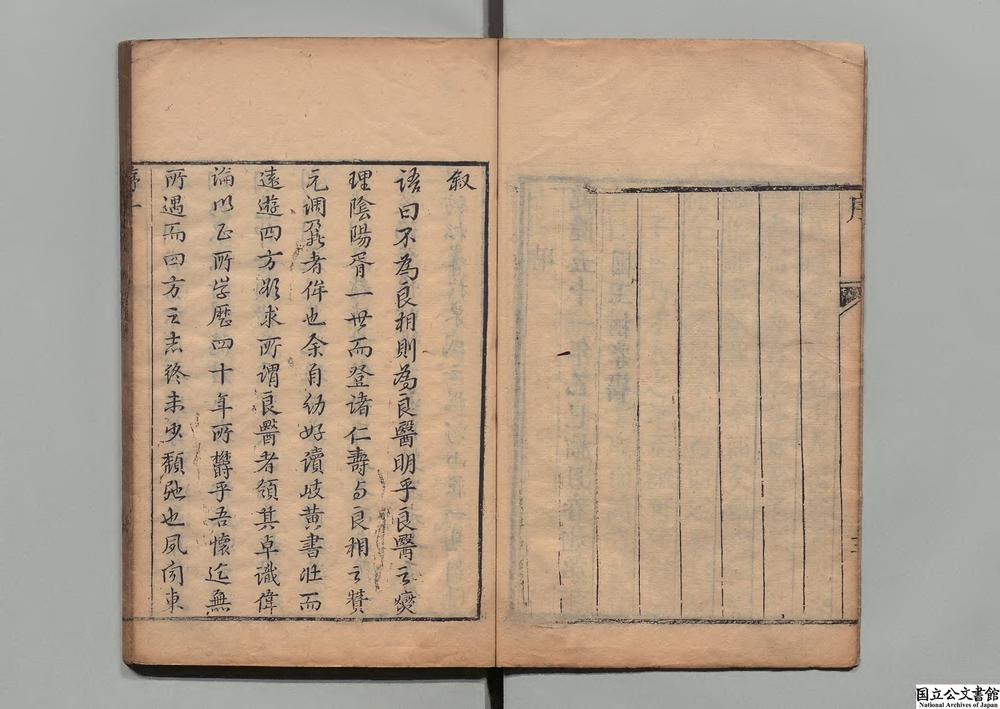 序
叙
語曰不為良相則為良醫明乎良醫之燮
理陰陽胥一世而登諸仁壽与良相之賛
元調鼐者侔也余自幼好讀岐黄書壯而
遠遊四方欲求所謂良醫者領其卓識偉
論以正所学歷四十年所欝乎吾懐迄無
所遇而四方之志終未少頽弛也夙向東
序 一
国立公文書館
National Archives of Japan